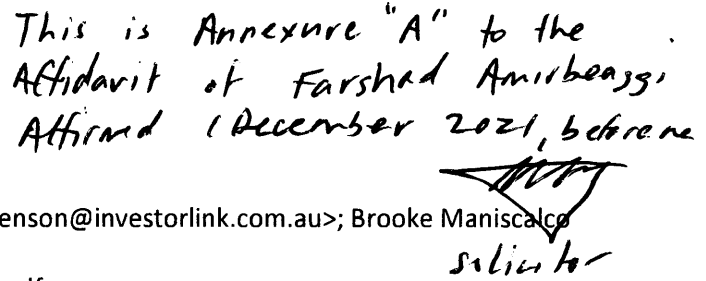 This is Annexure "A" to the
Affidavit of Farshad Amirbeaggi
Affirmed 1 December 2021, before me
enson@investorlink.com.au>; Brooke Maniscalco
solicitor